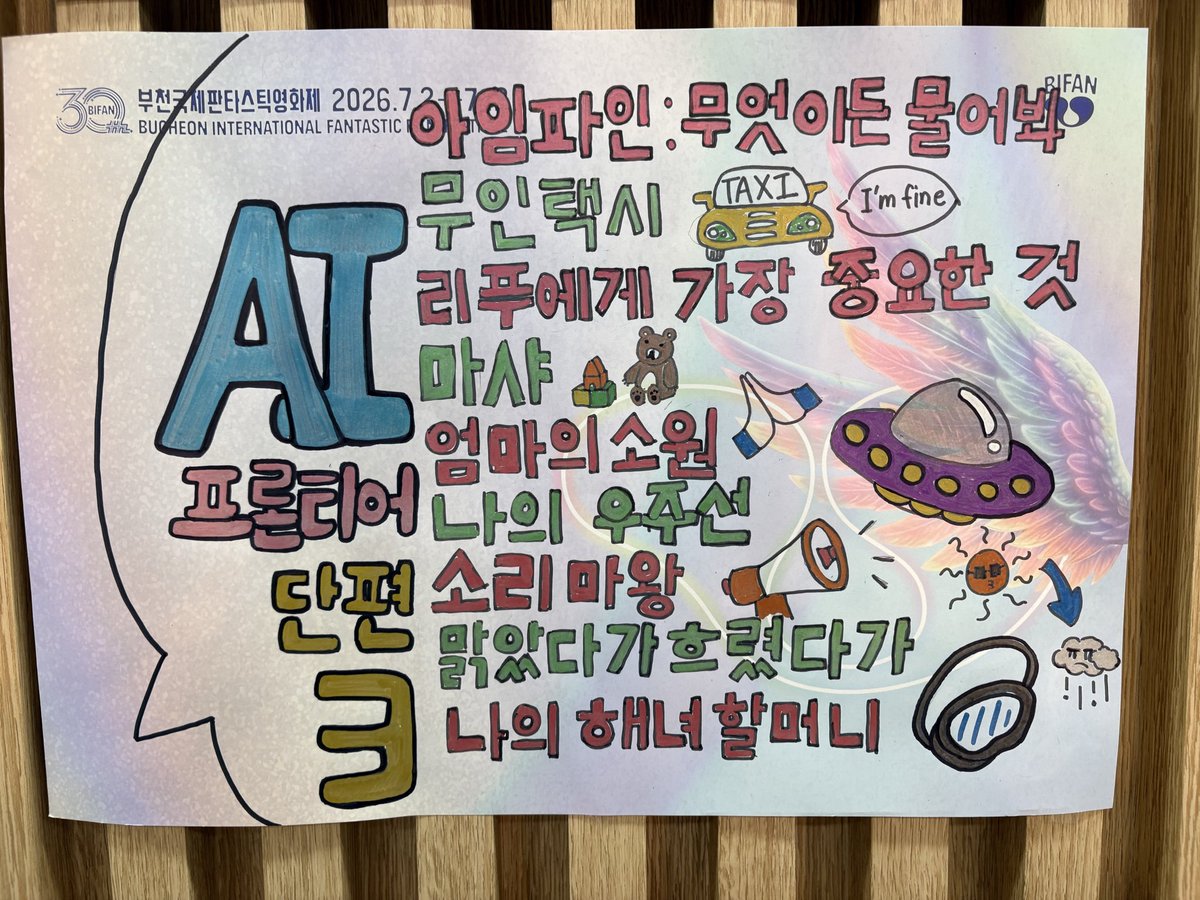 30 BIFAN
부천국제판타스틱영화제 2026.7.2
BUCHEON INTERNATIONAL FANTASTIC
BIFAN
AI
프론티어
단편
3
아임파인 : 무엇이든 물어봐
무인택시
TAXI
I'm fine
리푸에게 가장 중요한 것
마샤
엄마의 소원
나의 우주선
소리 마왕
맑았다가 흐렸다가
나의 해녀 할머니